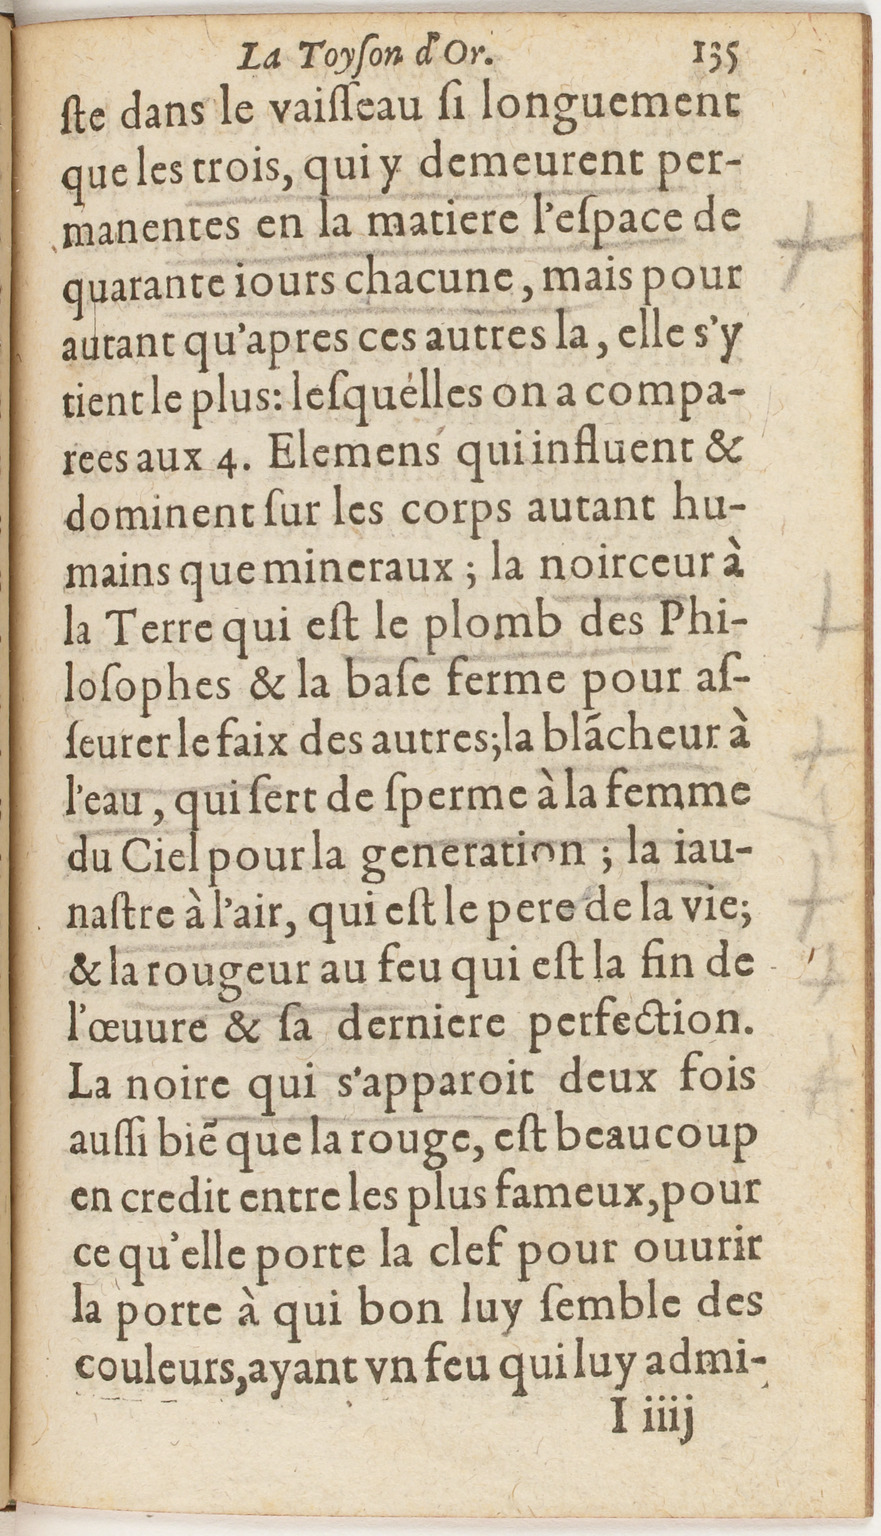 La Toyſon d'Or. 135
ſte dans le vaiſſeau ſi longuement
que les trois, qui y demeurent per-
manentes en la matiere l'eſpace de
quarante iours chacune, mais pour
autant qu'apres ces autres la, elle s'y
tient le plus: leſquélles on a compa-
rees aux 4. Elemens qui influent &
dominent ſur les corps autant hu-
mains que mineraux ; la noirceur à
la Terre qui eſt le plomb des Phi-
loſophes & la baſe ferme pour aſ-
ſeurer le faix des autres; la blãcheur à
l'eau, qui ſert de ſperme à la femme
du Ciel pour la generation ; la iau-
naſtre à l'air, qui eſt le pere de la vie;
& la rougeur au feu qui eſt la fin de
l'œuure & ſa derniere perfection.
La noire qui s'apparoit deux fois
auſſi biẽ que la rouge, eſt beaucoup
en credit entre les plus fameux, pour
ce qu'elle porte la clef pour ouurir
la porte à qui bon luy ſemble des
couleurs, ayant vn feu qui luy admi-
I iiij